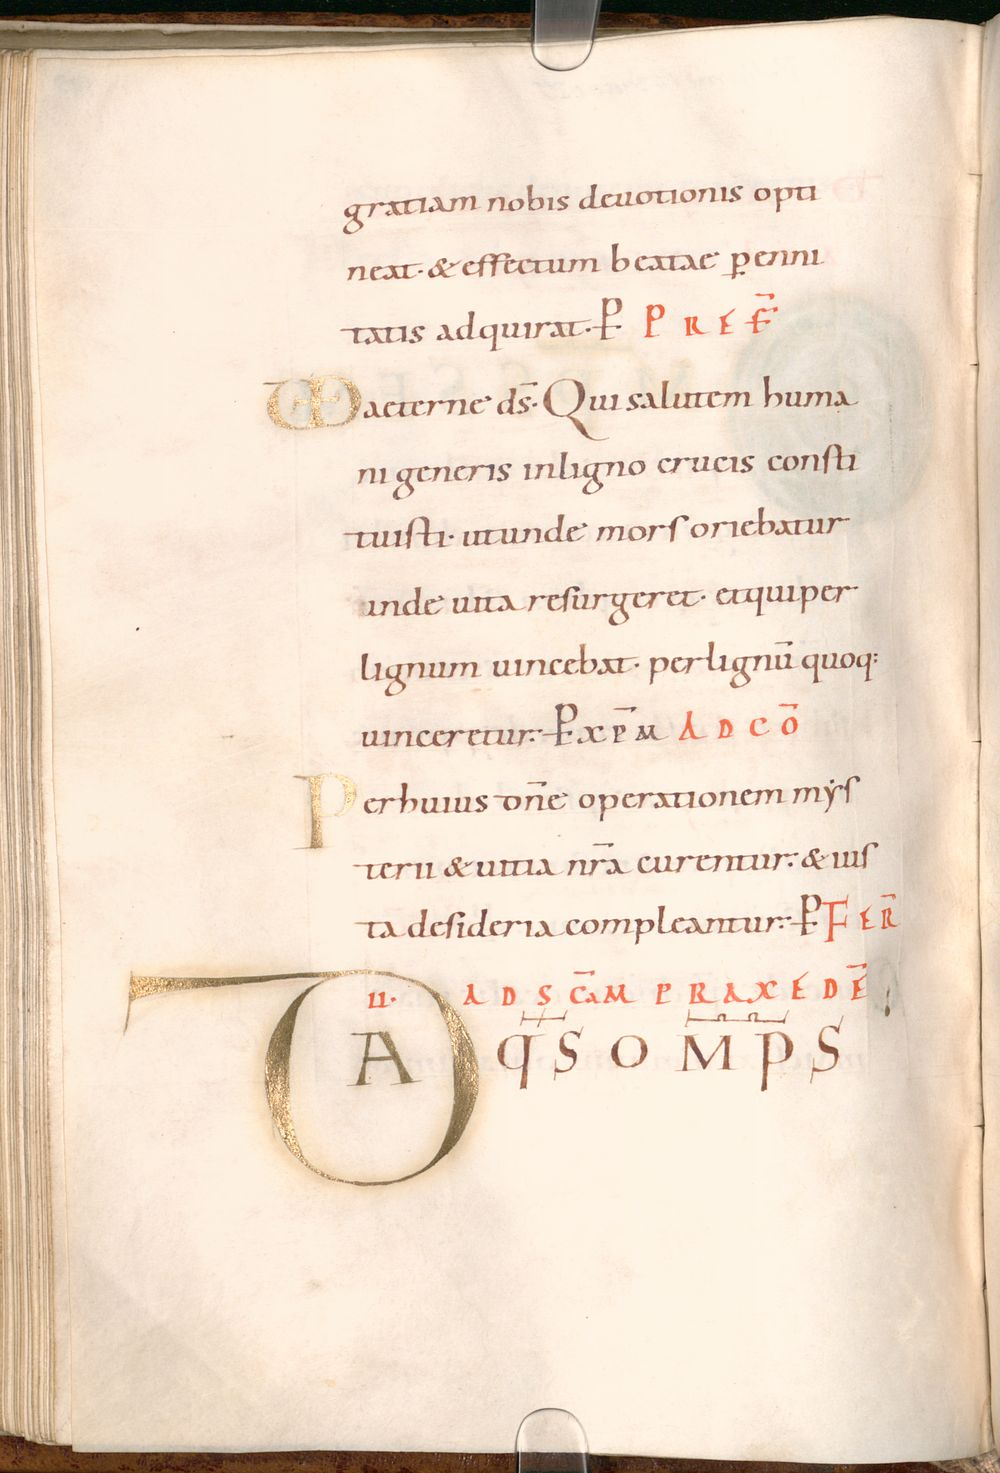 gratiam nobis deuotionis opti
neat· & effectum beatae ꝑenni
tatis adquirat· P̵ PREF̄
VD aeterne ds̄· Qui salutem huma
ni generis inligno crucis consti
tuisti· utunde mors oriebatur
unde uita resurgeret· etquiper
lignum uincebat· perlignū quoq:
uinceretur:· P̵ xp̄m AD CŌ
Perhuius dn̄e operationem mẏs
terii & uitia nr̄a curentur:· & ius
ta desideria compleantur:· P̵ FER̄
II· AD SC̄AM PRAXEDĒ
DA q̄S OMP̄S